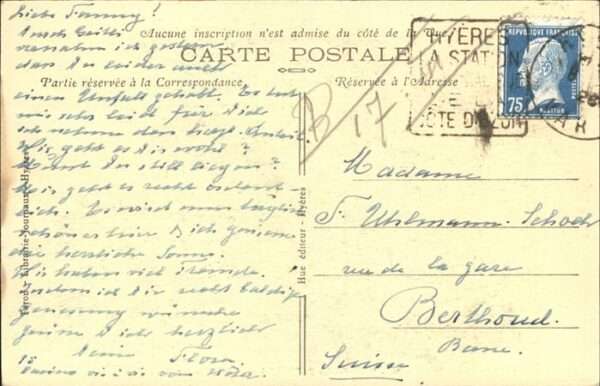 Liebe Fanny!
Durch Cécile
vernahm ich gestern
dass Du leider auch
einen Unfall gehabt. Es tut
mir sehr leid für Dich
ich nehme den herzl. Anteil.
Wie geht es Dir wohl?
Musst Du still liegen?
Mir geht es recht ordent-
lich. Es wird nun täglich
schöner hier & ich geniesse
die herrliche Sonne.
Wir haben viel Fremde.
Indem ich Dir recht baldige
Genesung wünsche
grüsse Dich herzlich
Deine Flora.
Aucune inscription n'est admise du côté de la Vue
CARTE POSTALE
Partie réservée à la Correspondance
Réservée à l'Adresse
B 17
HYÈRES
LA STATION
CÔTE D'AZUR
RÉPUBLIQUE FRANÇAISE
75
PASTEUR
POSTES
Hue éditeur - Hyères
Librairie Journaux, Hyères
Madame
F. Uhlmann-Schoch
rue de la gare
Berthoud.
Berne
Suisse